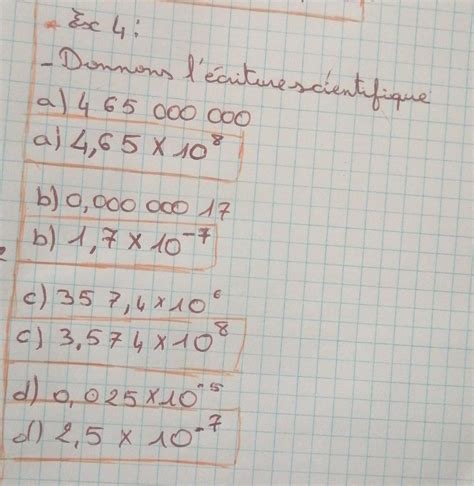 Ex 4:
- Donnons l'écriture scientifique
a) 4 65 000 000
a) 4,65 × 10⁸
b) 0,000 000 17
b) 1,7 × 10⁻⁷
c) 357,4 × 10⁶
c) 3,574 × 10⁸
d) 0,025 × 10⁻⁵
d) 2,5 × 10⁻⁷